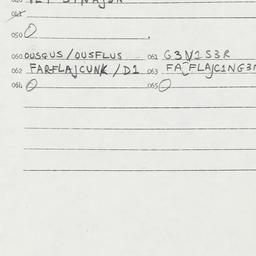 050 0
060 OUSGUS / OUSFLUS 061 G3N1S3R
062 FARFLAJCUNK / D1 063 FA FLAJC1NG3
064 0 065 0